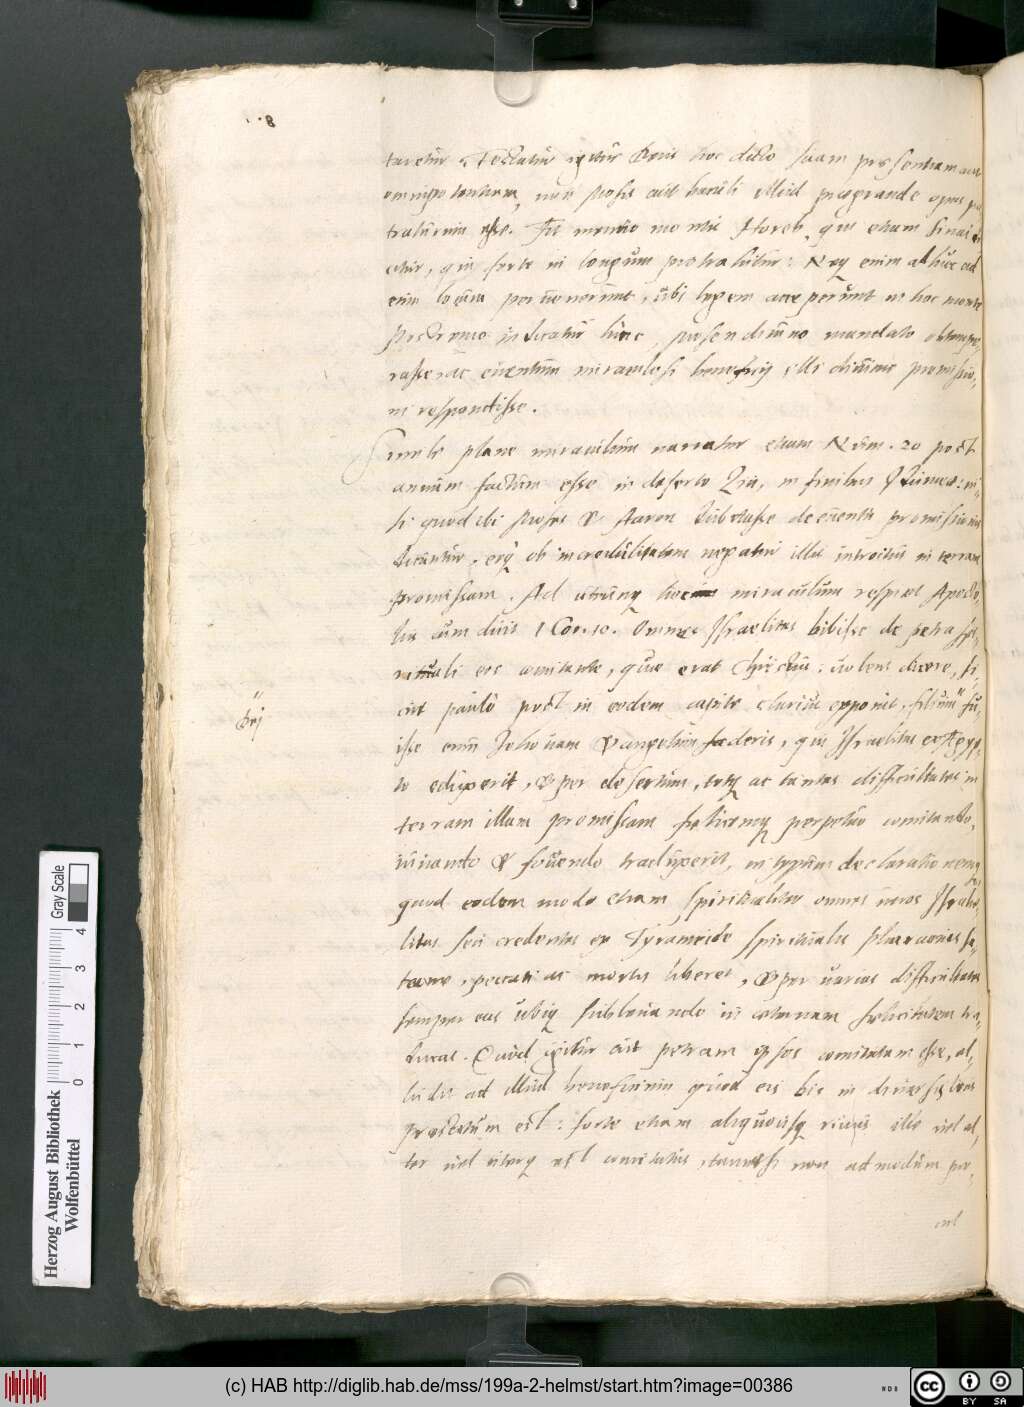 8
taretur. Testatur igitur Deus hoc dicto suam praesentiam ac
omnipotentiam, non Mosis aut baculi illud praegrande opus pa-
traturum esse. Fit mentio montis Horeb, qui etiam Sinai di-
citur, qui forte in longum protrahitur: Neq enim adhuc ad
eum locum pervenerunt, ubi legem acceperunt in hoc monte
Postremo indicatur hinc, Mosen divino mandato obtempe-
rasse ac eventum miraculosi beneficij illi divinae promissio-
ni respondisse.
Simile plane miraculum narratur etiam Num. 20 post
annum factum esse in deserto Zin, in finibus Idumeae: ni-
si quod ibi Moses & Aaron dubitasse de eventu promissionis
dicuntur, eoq ob incredulitatem negatur illis introitus in terram
promissam. Ad utrunq hoc miraculum respicit Aposto-
lus cum dicit 1 Cor. 10. Omnes Israelitas bibisse de petra spi-
rituali eos comitante, quae erat Christus: volens dicere, si-
cut paulo post in eodem capite clarius exponit, filium" fu-
" Dej
isse enim Jehovam & angelum foederis, qui Israelitas ex Aegyp-
to eduxerit, & per desertum, totq ac tantas difficultates in
terram illam promissam felicemq perpetuo comitando,
iuvando & fovendo traduxerit, in typum declarationemq
quod eodem modo etiam spiritualiter omnes veros Israeli-
litas seu credentes ex Tyrannide spiritualis Pharaonis Sa-
tanae, peccati ac mortis liberet, & per varias difficultates
semper eos ubiq sublevando in coelumnam felicitatem tra-
ducat. Quod igitur ait petram ipsos comitatam esse, al-
ludit ad illud beneficium quod eis bis in diversis locis
praestitum est: forte etiam aliquousq rivus ille vel al-
ter vel uterq est comitatus, tametsi non admodum pro-
cul
Herzog August Bibliothek
Wolfenbüttel
0 1 2 3 4
Gray Scale
(c) HAB http://diglib.hab.de/mss/199a-2-helmst/start.htm?image=00386
cc BY SA